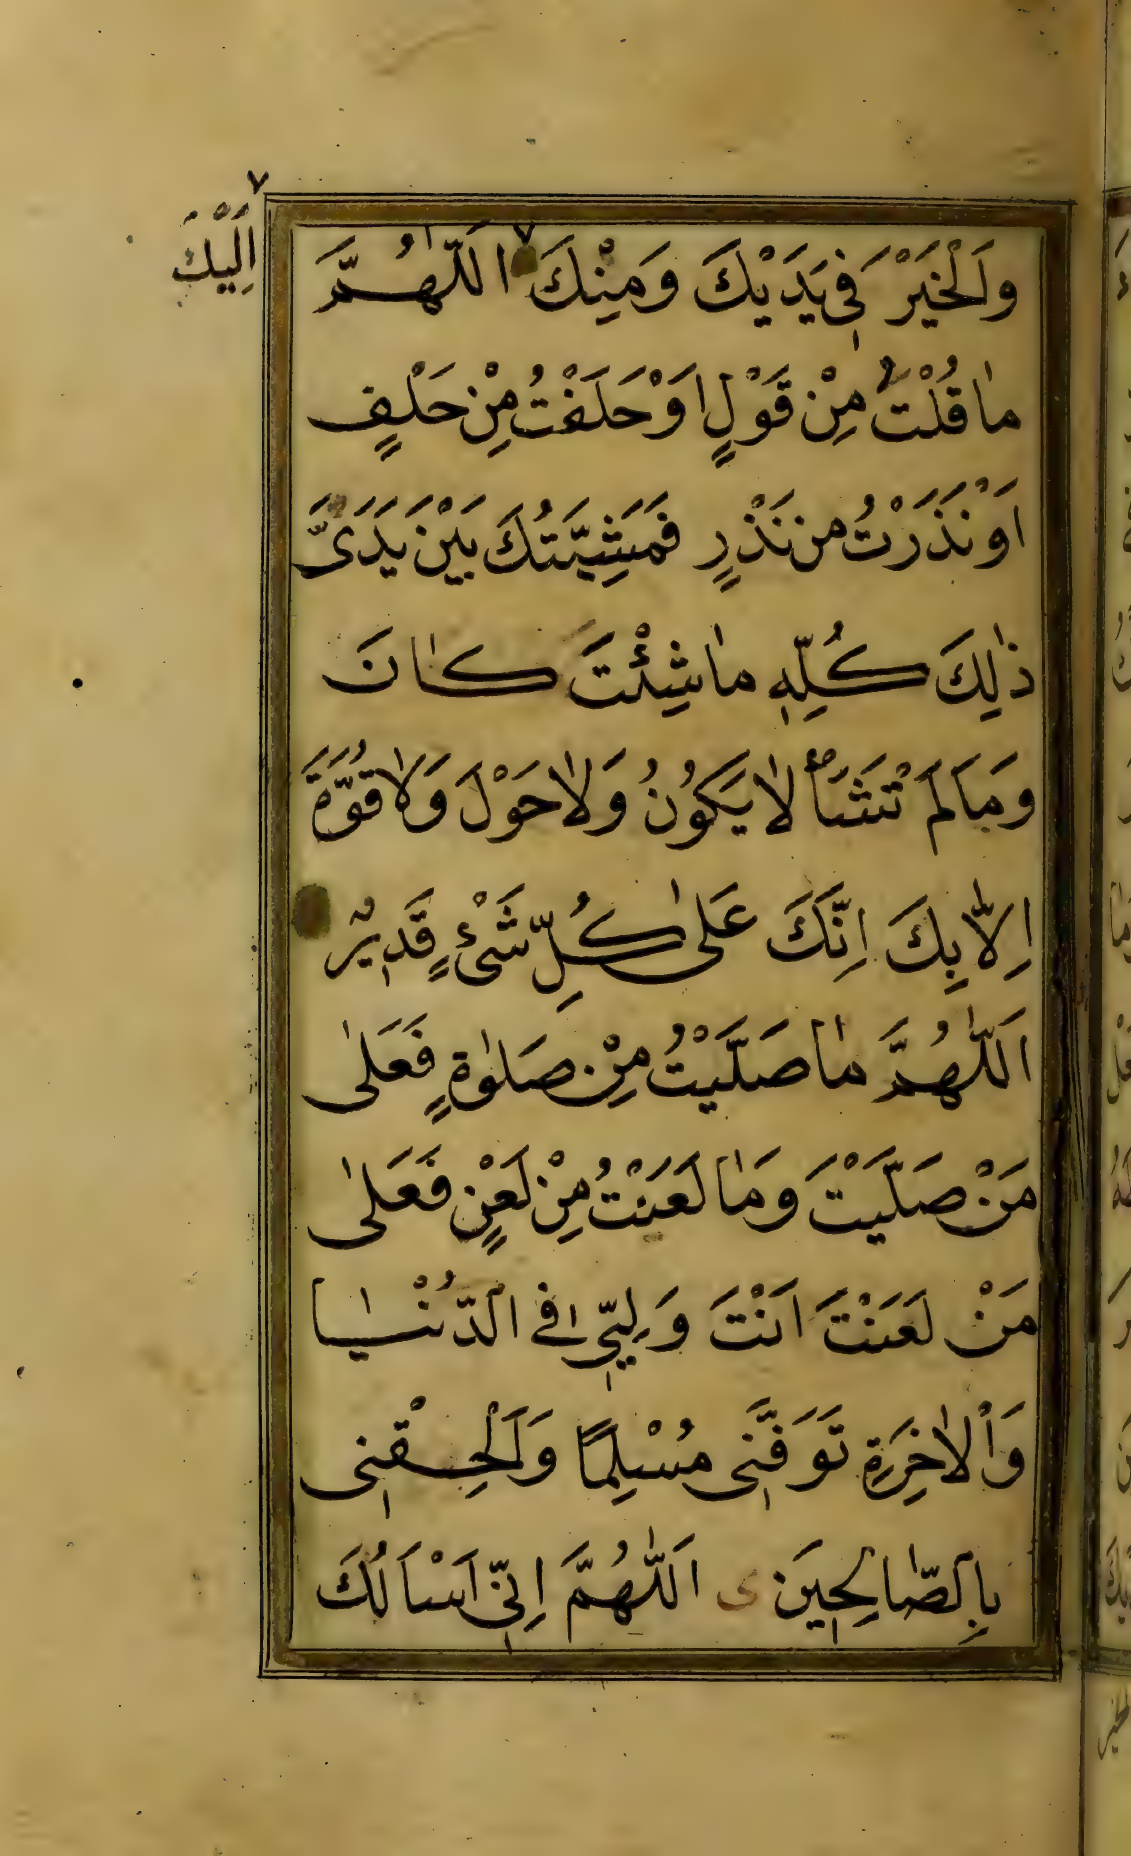 وَالْخَيْرَ فِي يَدَيْكَ وَمِنْكَ اَللّٰهُمَّ
اِلَيْكَ
مٰا قُلْتُ مِنْ قَوْلٍ اَوْ حَلَفْتُ مِنْ حَلْفٍ
اَوْ نَذَرْتُ مِنْ نَذْرٍ فَمَشِيَّتُكَ بَيْنَ يَدَىَّ
ذٰلِكَ كُلِّهِ مٰا شِئْتَ كٰانَ
وَمَا لَمْ تَشَأْ لٰا يَكُونُ وَلٰا حَوْلَ وَلٰا قُوَّةَ
اِلّٰا بِكَ اِنَّكَ عَلٰى كُلِّ شَىْءٍ قَدِيرٌ
اَللّٰهُمَّ مٰا صَلَّيْتُ مِنْ صَلٰوةٍ فَعَلٰى
مَنْ صَلَّيْتَ وَمٰا لَعَنْتُ مِنْ لَعْنٍ فَعَلٰى
مَنْ لَعَنْتَ اَنْتَ وَلِيِّي فِي الدُّنْيٰا
وَالْاٰخِرَةِ تَوَفَّنِي مُسْلِمًا وَاَلْحِقْنِي
بِالصّٰالِحِينَ ى اَللّٰهُمَّ اِنِّي اَسْاَلُكَ